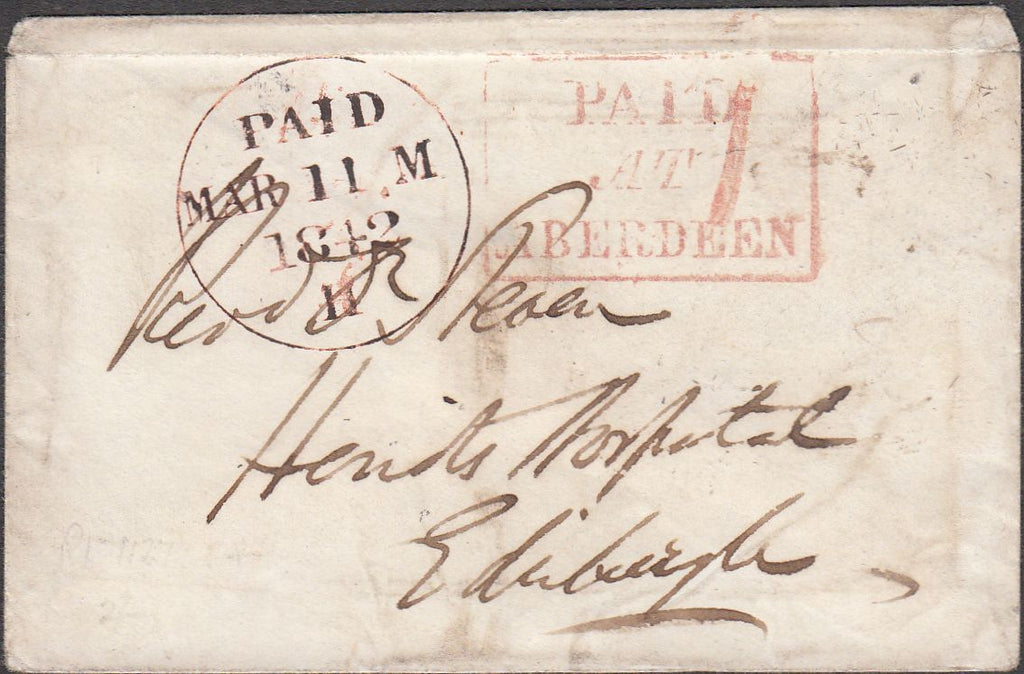 PAID
MAR 11 M
1842
11
PAID
AT
ABERDEEN
1
Revd Dr Steven
Heriots Hospital
Edinburgh